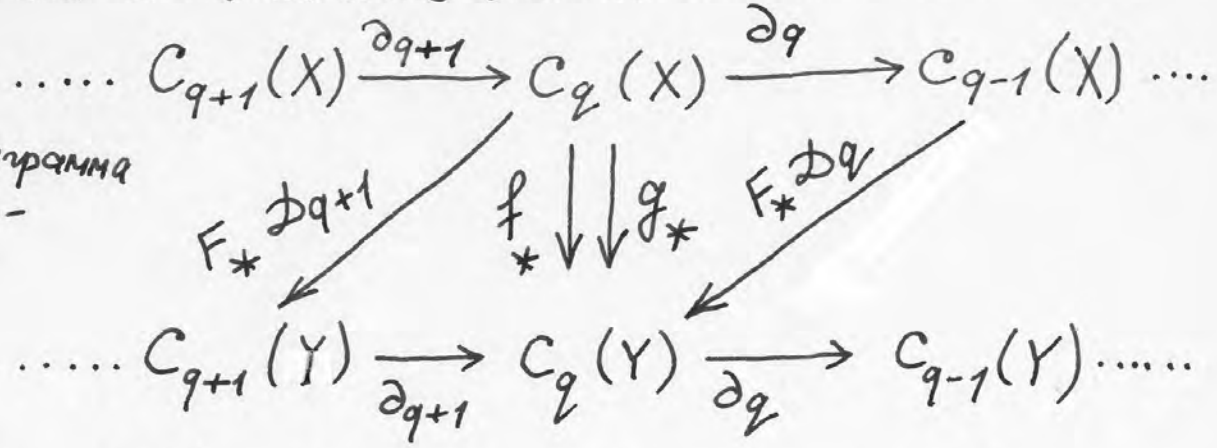 ..... C_{q+1}(X) ∂_{q+1} → C_q(X) ∂_q → C_{q-1}(X) ....
грамма
F_* D_{q+1} f_* g_* F_* D_q
..... C_{q+1}(Y) → ∂_{q+1} C_q(Y) → ∂_q C_{q-1}(Y) ......